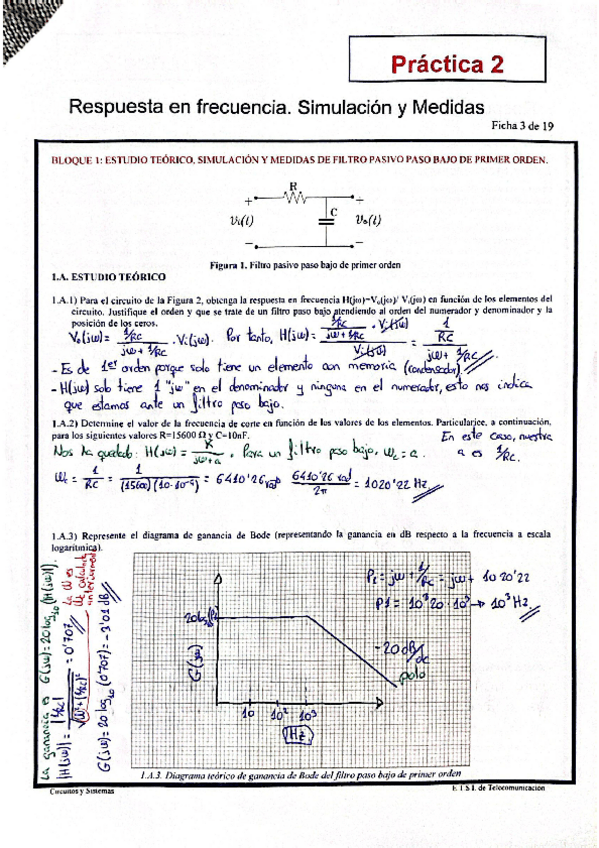 Práctica 2
Respuesta en frecuencia. Simulación y Medidas
Ficha 3 de 19
BLOQUE 1: ESTUDIO TEÓRICO, SIMULACIÓN Y MEDIDAS DE FILTRO PASIVO PASO BAJO DE PRIMER ORDEN.
R
+ +
Vi(t) C Vo(t)
− −
Figura 1. Filtro pasivo paso bajo de primer orden
1.A. ESTUDIO TEÓRICO
1.A.1) Para el circuito de la Figura 2, obtenga la respuesta en frecuencia H(jω)=Vo(jω)/ Vi(jω) en función de los elementos del
circuito. Justifique el orden y que se trate de un filtro paso bajo atendiendo al orden del numerador y denominador y la
posición de los ceros.
Vo(jω) = 1/RC / (jω + 1/RC) · Vi(jω). Por tanto, H(jω) = (1/RC / (jω + 1/RC) · Vi(jω)) / Vi(jω) = (1/RC) / (jω + 1/RC)
- Es de 1er orden porque solo tiene un elemento con memoria (condensador)
- H(jω) solo tiene 1 "jω" en el denominador y ninguna en el numerador, esto nos indica
que estamos ante un filtro paso bajo.
1.A.2) Determine el valor de la frecuencia de corte en función de los valores de los elementos. Particularice, a continuación,
para los siguientes valores R=15600 Ω y C=10nF.
En este caso, nuestra
Nos ha quedado: H(jω) = K / (jω+a). Para un filtro paso bajo, ωc = a. a es 1/RC.
ωc = 1/RC = 1 / (15600)(10·10⁻⁹) = 6410'26 rad/s 6410'26 rad / 2π = 1020'22 Hz
1.A.3) Represente el diagrama de ganancia de Bode (representando la ganancia en dB respecto a la frecuencia a escala
logarítmica).
La ganancia es G(jω) = 20 log10 |H(jω)|.
|H(jω)| = |1/RC| / √(ω²+(1/RC)²) = 0'707
La ω es
ωc calculada
G(jω) = 20 log10 (0'707) = -3'01 dB
P1 = jω + 1/RC = jω + 1020'22
P1 = 10³20·10³ → 10³ Hz
G(jω)
-20 dB/dc
polo
10 10² 10³
Hz
1.A.3. Diagrama teórico de ganancia de Bode del filtro paso bajo de primer orden
Circuitos y Sistemas
E.T.S.I. de Telecomunicación